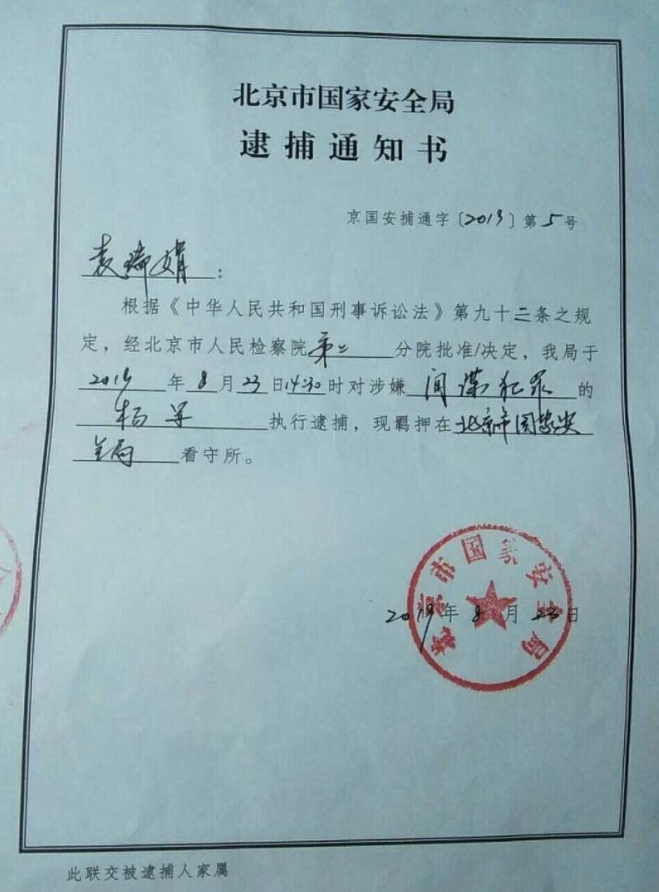 北京市国家安全局
逮捕通知书
京国安捕通字〔2019〕第5号
袁瑞娟：
根据《中华人民共和国刑事诉讼法》第九十三条之规
定，经北京市人民检察院第二分院批准/决定，我局于
2019年8月23日14:30时对涉嫌间谍犯罪的
杨军执行逮捕，现羁押在北京市国家安
全局看守所。
北京市国家安全局
2019年8月23日
此联交被逮捕人家属